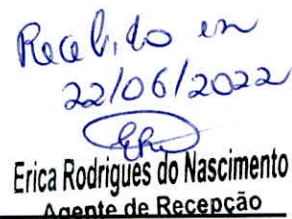 Recebido em
22/06/2022
Erica Rodrigues do Nascimento
Agente de Recepção